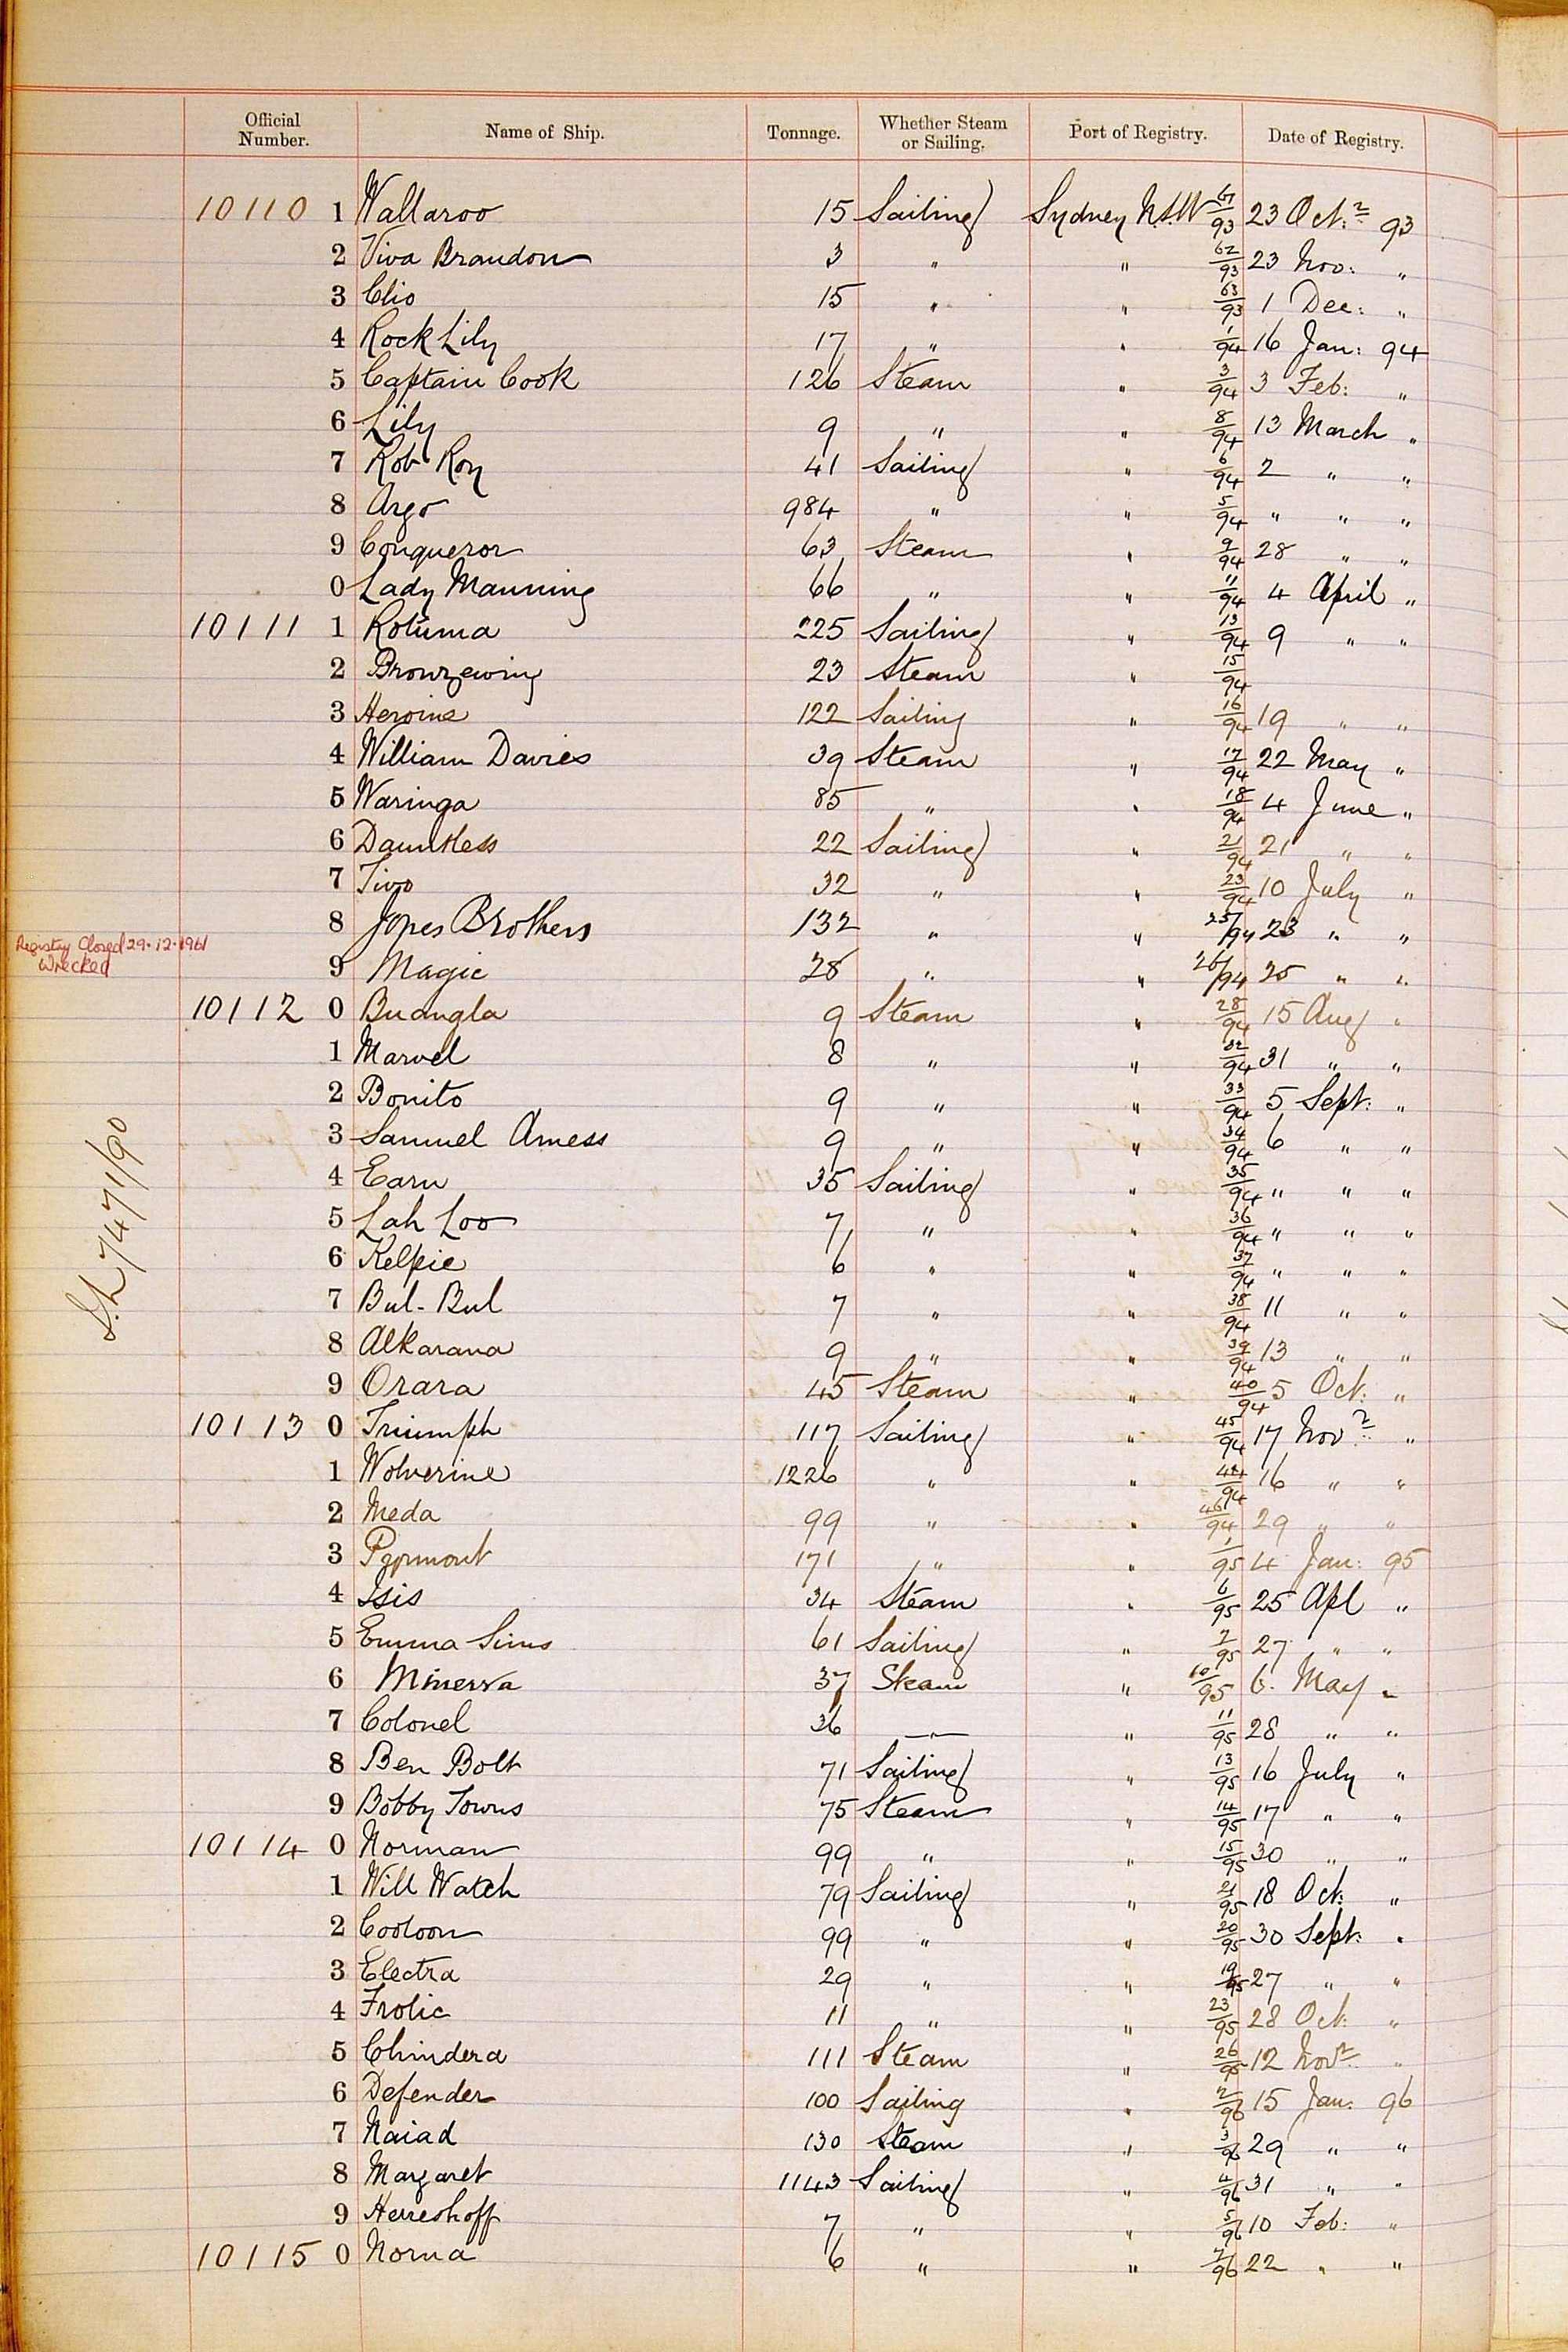 Official Number. Name of Ship. Tonnage. Whether Steam or Sailing. Port of Registry. Date of Registry.
10110 1 Wallaroo 15 Sailing Sydney N.S.W 61/93 23 Oct.r 93
2 Viva Brandon 3 " " 62/93 23 Nov: "
3 Clio 15 " " 63/93 1 Dec: "
4 Rock Lily 17 " " 1/94 16 Jan: 94
5 Captain Cook 126 Steam " 3/94 3 Feb: "
6 Lily 9 " " 8/94 13 March "
7 Rob Roy 41 Sailing " 6/94 2 " "
8 Argo 984 " " 5/94 " " "
9 Conqueror 63 Steam " 9/94 28 " "
0 Lady Manning 66 " " 11/94 4 April "
10111 1 Rotuma 225 Sailing " 13/94 9 " "
2 Bronzewing 23 Steam " 15/94
3 Heroine 122 Sailing " 16/94 19 " "
4 William Davies 39 Steam " 17/94 22 May "
5 Waringa 85 " " 18/94 4 June "
6 Dauntless 22 Sailing " 21/94 21 " "
7 Tivo 32 " " 23/94 10 July "
8 Jones Brothers 132 " " 25/94 23 " "
Registry Closed 29.12.1961
Wrecked
9 Magic 28 " " 26/94 25 " "
10112 0 Buangla 9 Steam " 28/94 15 Aug "
1 Marvel 8 " " 32/94 31 " "
2 Bonito 9 " " 33/94 5 Sept: "
3 Samuel Amess 9 " " 34/94 6 " "
4 Earn 35 Sailing " 35/94 " " "
5 Lah Loo 7 " " 36/94 " " "
6 Kelpie 6 " " 37/94 " " "
7 Bul-Bul 7 " " 38/94 11 " "
8 Alkarana 9 " " 39/94 13 " "
9 Orara 45 Steam " 40/94 5 Oct: "
10113 0 Triumph 117 Sailing " 45/94 17 Nov.r "
1 Wolverine 1226 " " 44/94 16 " "
2 Meda 99 " " 46/94 29 " "
3 Pyrmont 171 " " 1/95 4 Jan: 95
4 Isis 34 Steam " 6/95 25 Apl "
5 Emma Sims 61 Sailing " 7/95 27 " "
6 Minerva 37 Steam " 10/95 6. May "
7 Colonel 36 " " 11/95 28 " "
8 Ben Bolt 71 Sailing " 13/95 16 July "
9 Bobby Towns 75 Steam " 14/95 17 " "
10114 0 Norman 99 " " 15/95 30 " "
1 Will Watch 79 Sailing " 21/95 18 Oct: "
2 Cooloon 99 " " 20/95 30 Sept: "
3 Electra 29 " " 19/95 27 " "
4 Frolic 11 " " 23/95 28 Oct: "
5 Chindera 111 Steam " 26/95 12 Nov.r "
6 Defender 100 Sailing " 2/96 15 Jan: 96
7 Naiad 130 Steam " 3/96 29 " "
8 Margaret 1143 Sailing " 4/96 31 " "
9 Herreshoff 7 " " 5/96 10 Feb: "
10115 0 Norna 6 " " 7/96 22 " "
S.L 7471/90